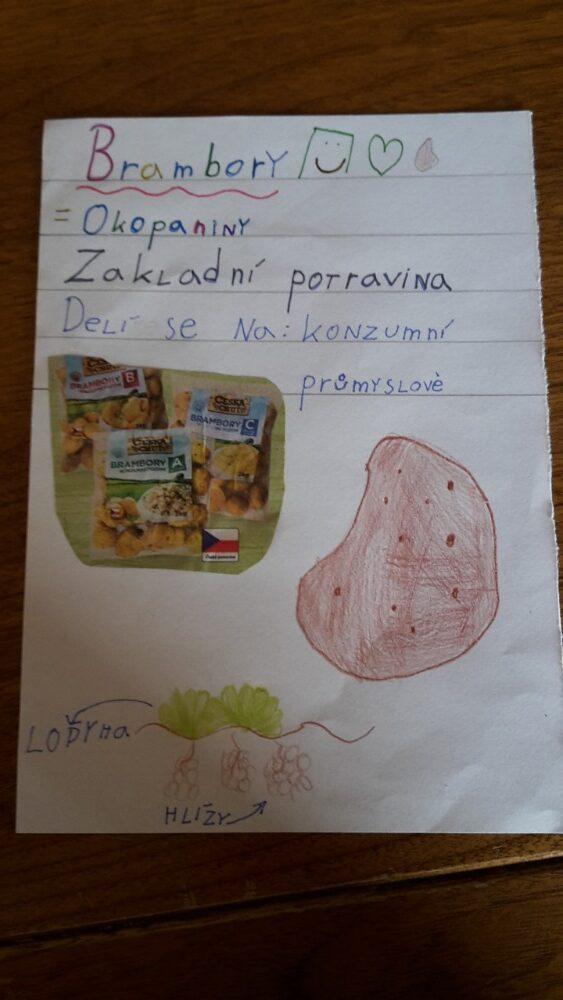 Brambory
= Okopaniny
Zakladní potravina
Delí se na: konzumní
průmyslovè
ČESKÁ
CHUŤ
BRAMBORY B
ČESKÁ
CHUŤ
BRAMBORY C
ČESKÁ
CHUŤ
BRAMBORY A
LODYHA
HLÍZY